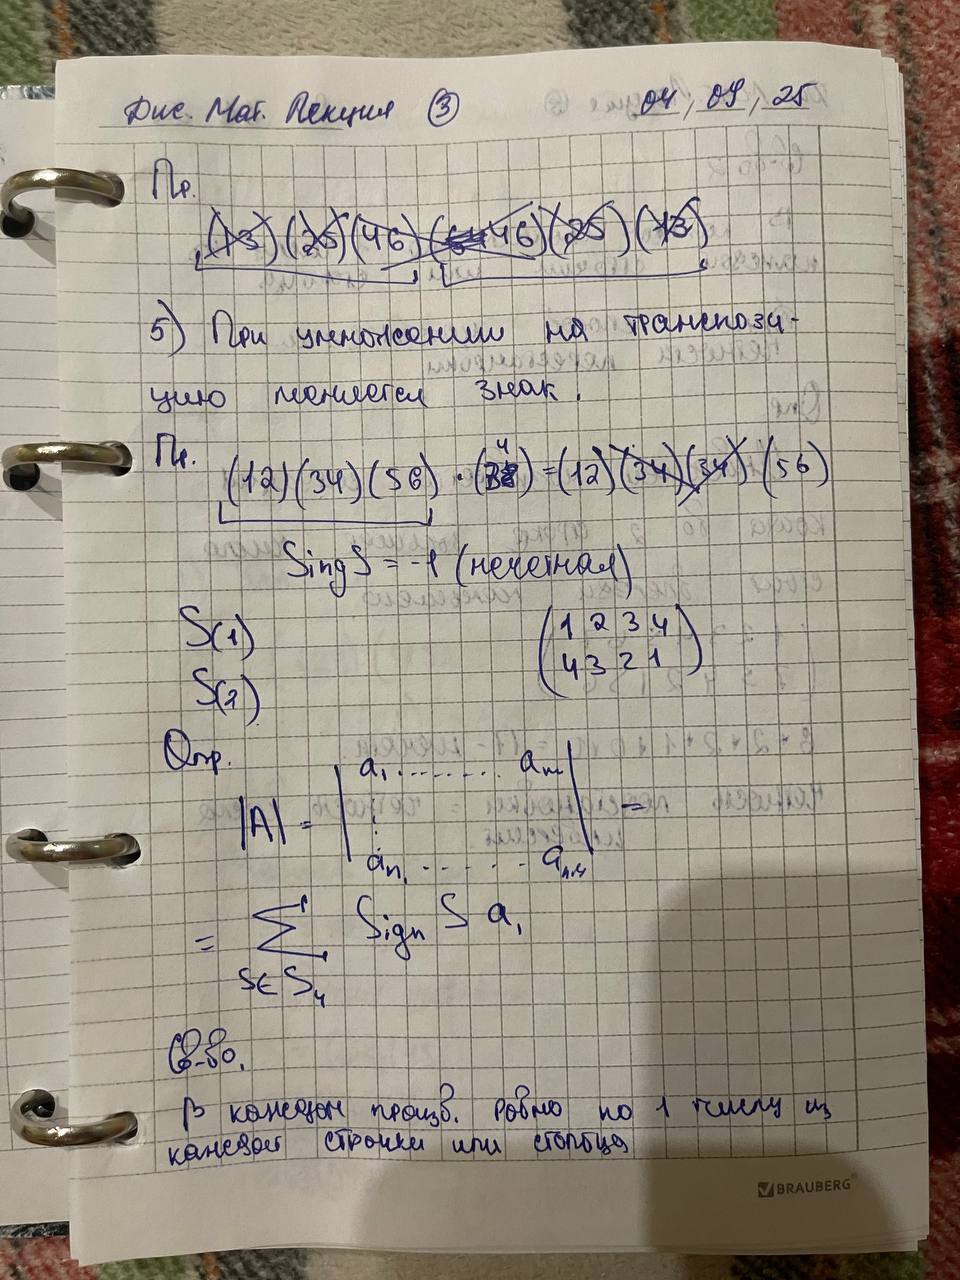 Дис. Мат. Лекция ③ 04, 09, 25
Пр.
(13)(25)(46)(46)(25)(13)
5) При умножении на транспози-
цию меняется знак.
Пр.
(12)(34)(56) · (34) = (12)(34)(34) · (56)
Sing S = -1 (нечетная)
S(1) (1 2 3 4
S(2) 4 3 2 1)
Опр.
|A| = | a₁ ........ aₙ | =
aₙ₁ ...... aₙ.ₙ
= Σ Sign S a₁
S ∈ S₄
Св-во.
В каждом произв. ровно по 1 числу из
каждой строчки или столбца
BRAUBERG